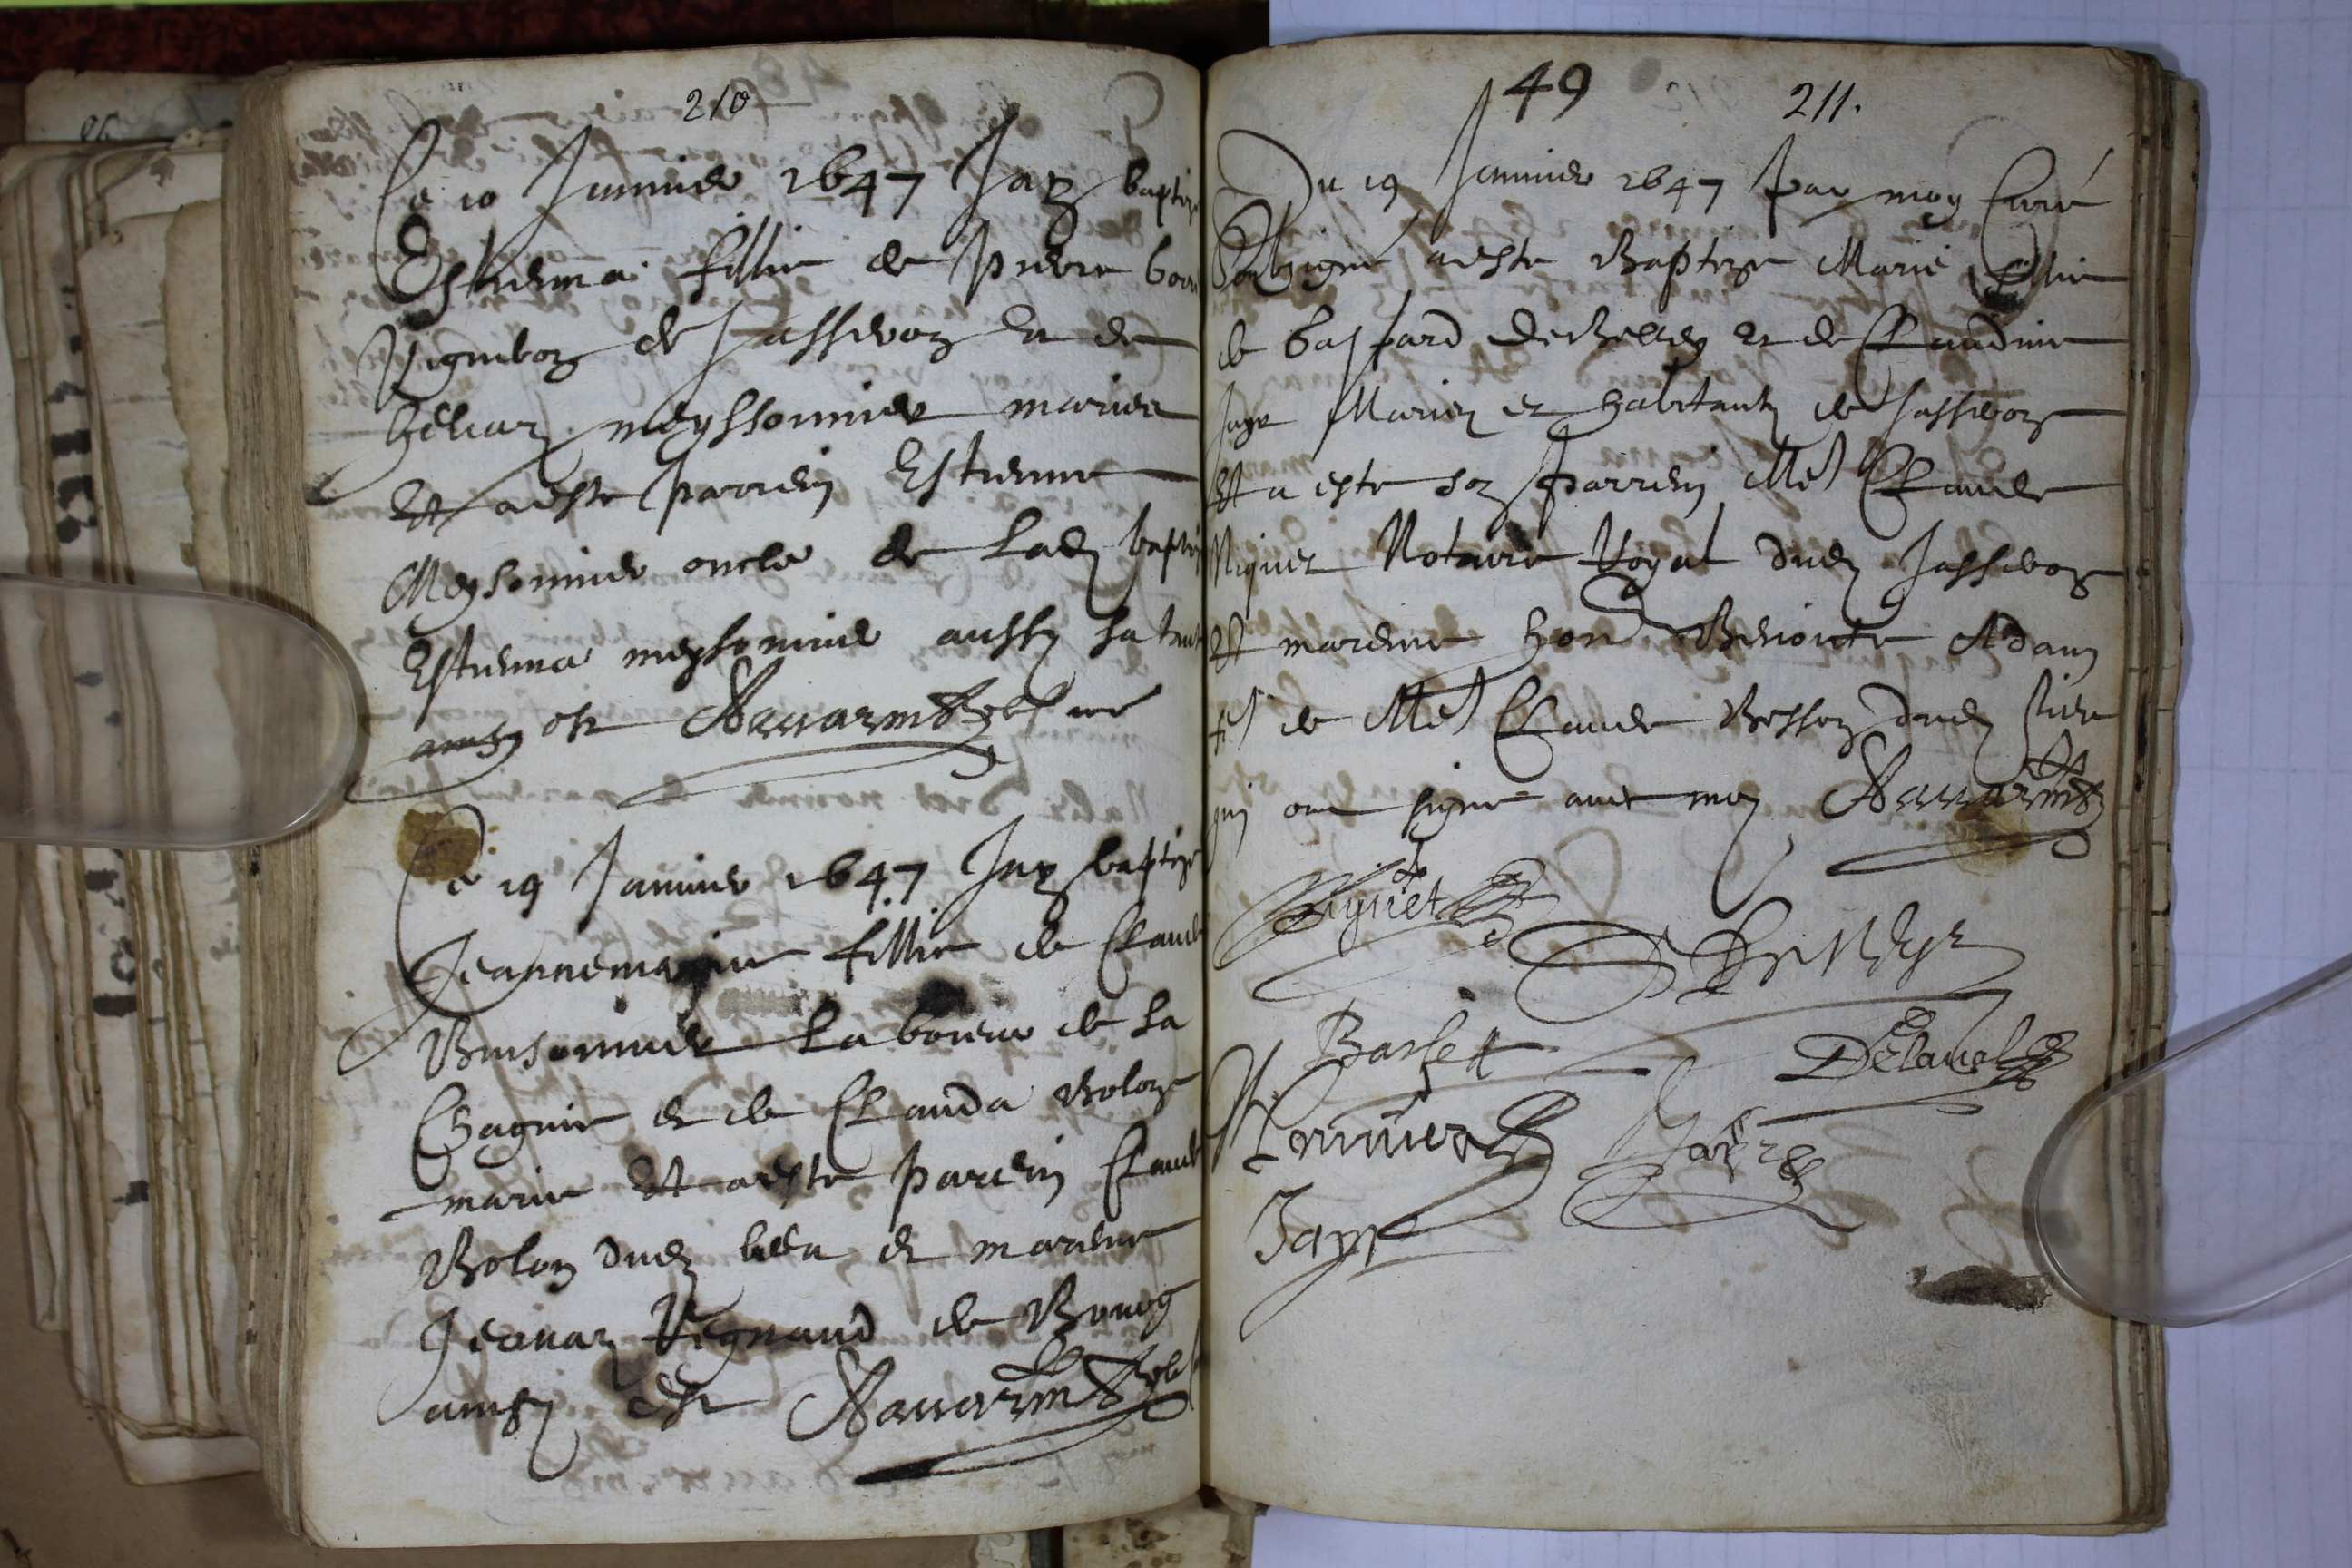 210
Le 10 Janvier 1647 Jay baptize
Estienna fillie de Pierre
Vigneron de Jasseron et de
meyssonnier mariez
Et a este parrein Estienne
Meysonnier oncle de Lad baptizee
Estienna meysonnier aussy sa tante
ainsy est Navarin
Le 19 Janvier 1647 Jay baptize
Jeannemarie fillie de Claude
Buisonnier Laboreur de la
Chagnie et de Clauda Bolon
marie Et a este parrein Claude
Bolon dud lieu et marene
Regnaud de Bourg
ainsy est Navarin
49 211.
Du 19 Janvier 1647 par moy Curé
Soubsigné a este Baptize Marie fillie
de Gaspard et de Claudine
Jayr Mariez et habitantz de Jasseron
Et a este son Parrein Me Claude
Niguet Notaire Royal dud Jasseron
Et marene hon Benoiste Adam
fe de Me Claude Besson dud lieu
qui ont signe avec moy Navarin
Niguet
Basset
Delaval
Jayr
Jayr